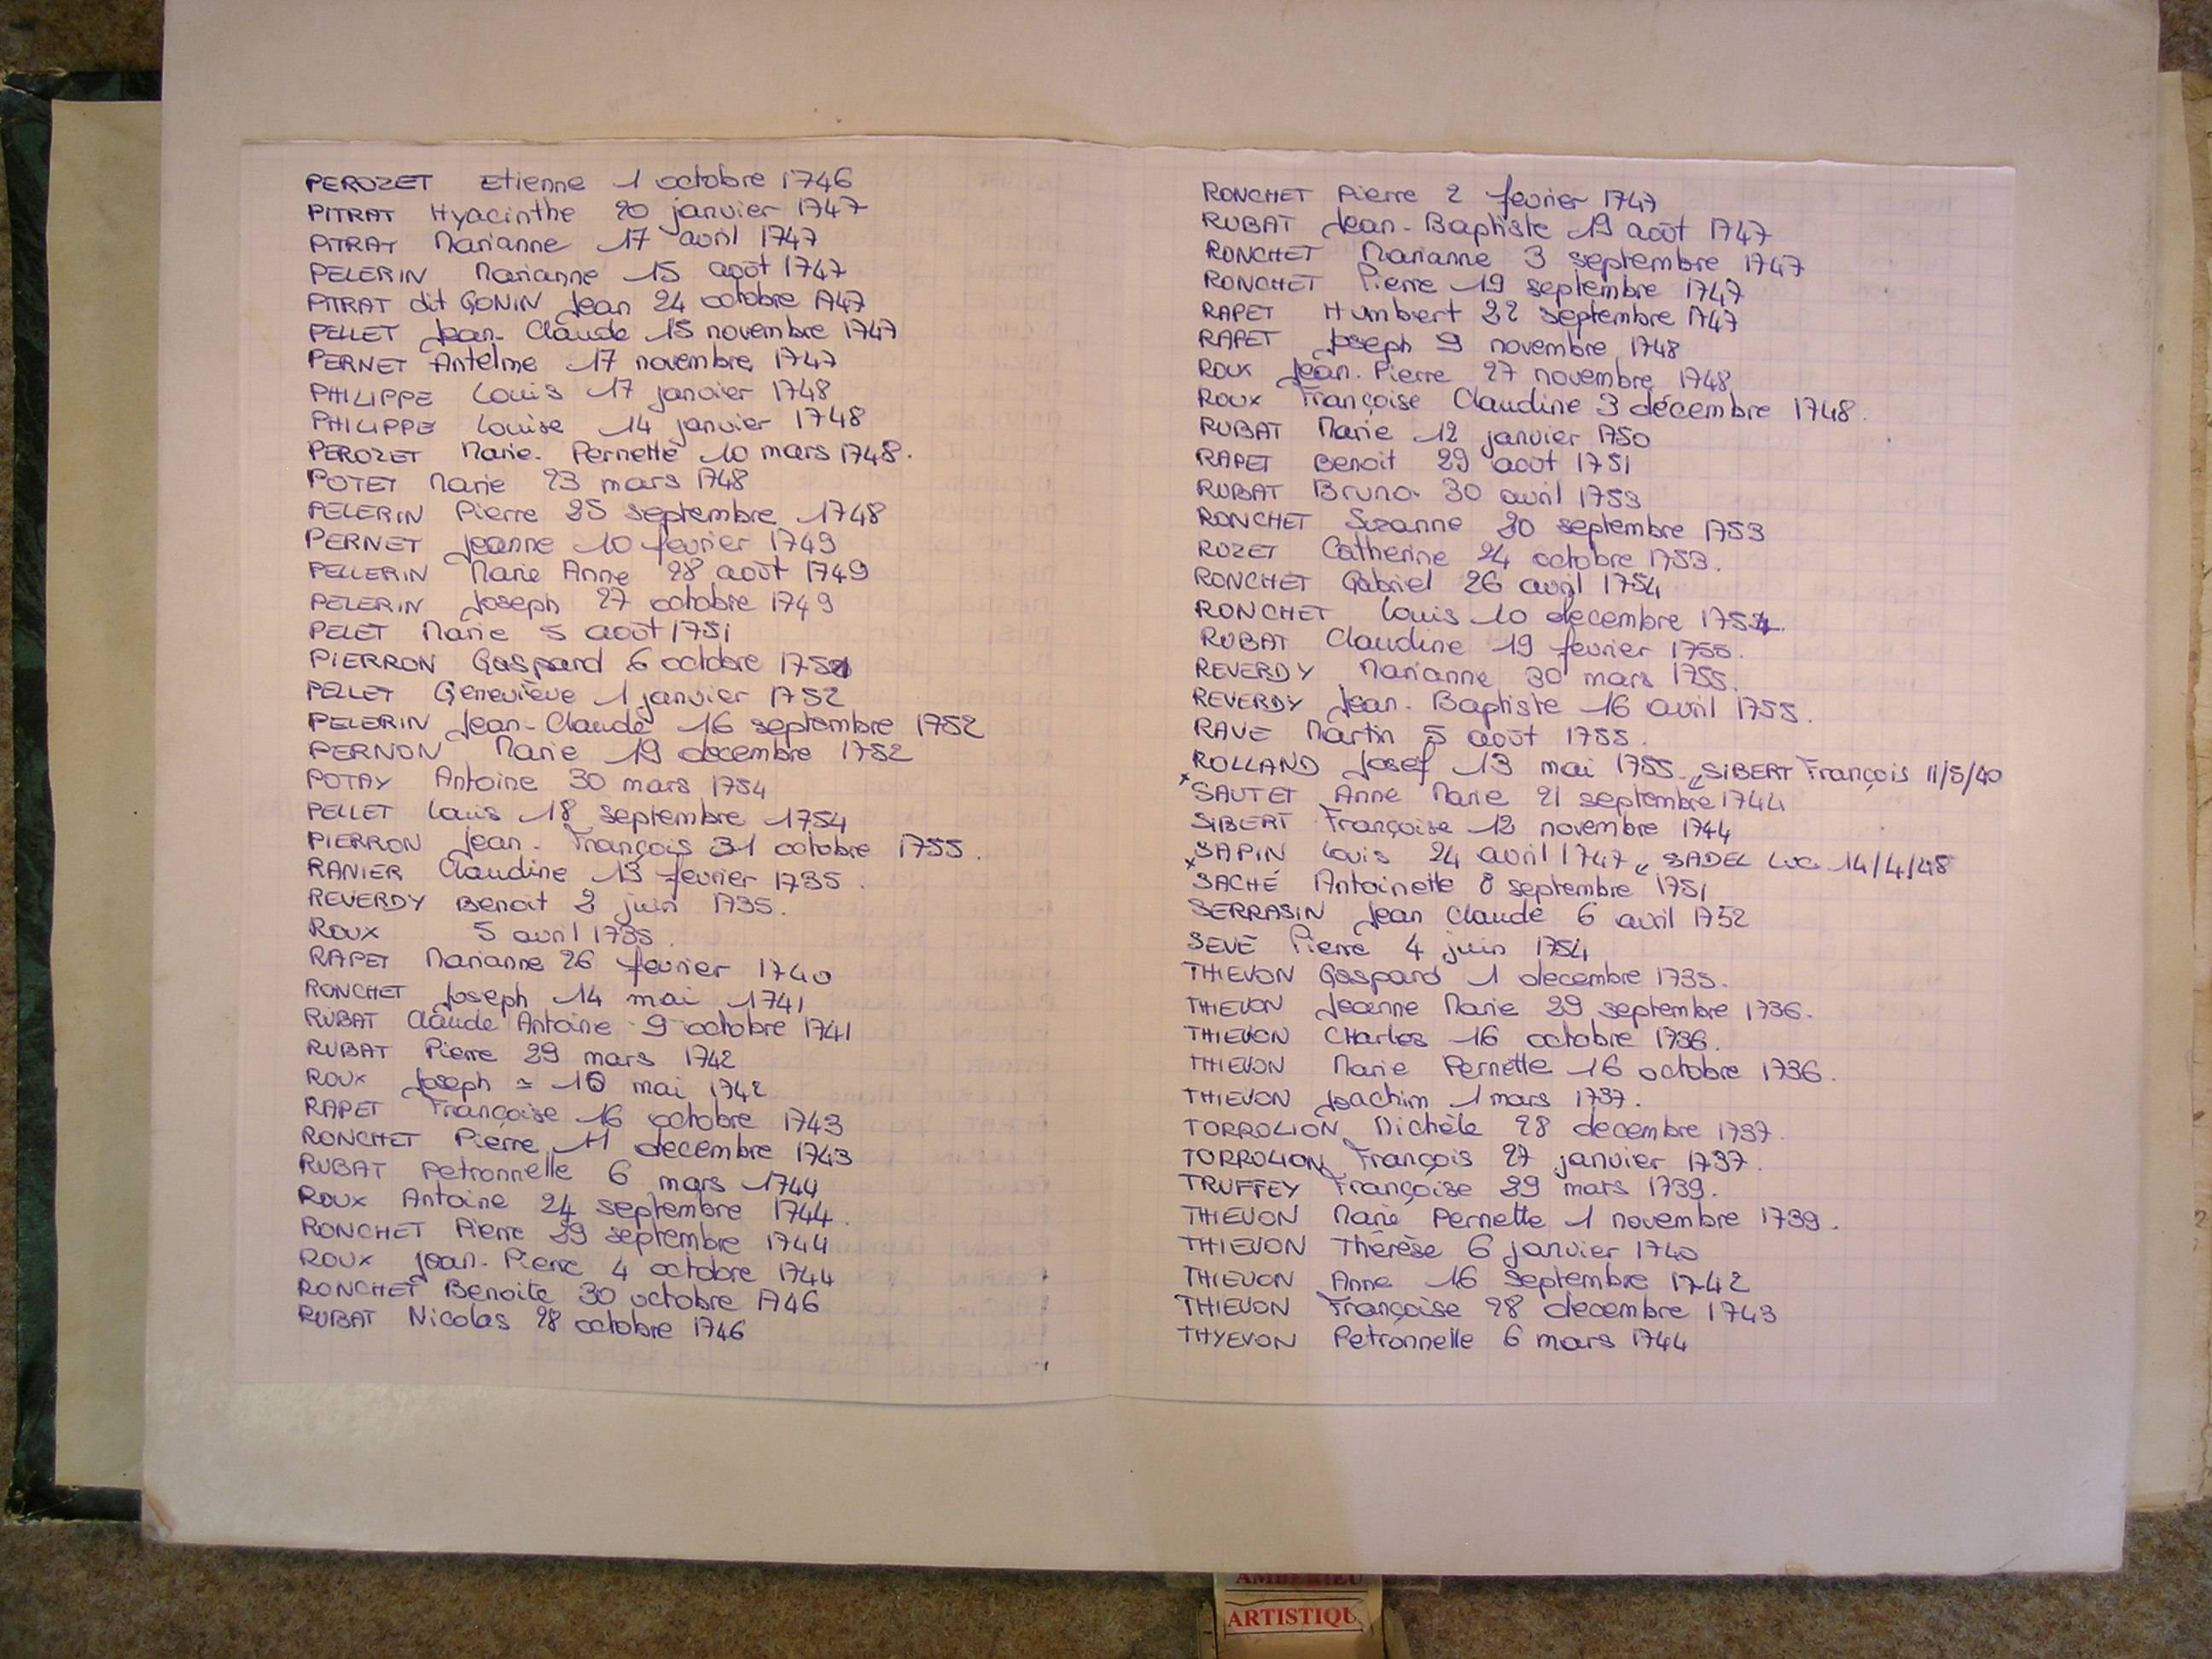 PEROZET Etienne 1 octobre 1746
PITRAT Hyacinthe 20 janvier 1747
PITRAT Marianne 17 avril 1747
PELERIN Marianne 15 août 1747
PITRAT dit GONIN Jean 24 octobre 1747
PELLET Jean-Claude 15 novembre 1747
PERNET Antelme 17 novembre 1747
PHILIPPE Louis 17 janvier 1748
PHILIPPE Louise 14 janvier 1748
PEROZET Marie-Pernette 10 mars 1748.
POTET Marie 23 mars 1748
PELERIN Pierre 25 septembre 1748
PERNET Jeanne 10 fevrier 1749
PELLERIN Marie Anne 28 août 1749
PELERIN Joseph 27 octobre 1749
PELET Marie 5 août 1751
PIERRON Gaspard 6 octobre
PELLET Geneviève 1 janvier 1752
PELERIN Jean-Claude 16 septembre 1752
PERNON Marie 19 decembre 1752
POTAY Antoine 30 mars 1754
PELLET Louis 18 septembre 1754
PIERRON Jean-François 31 octobre 1755.
RANIER Claudine 13 fevrier 1735.
REVERDY Benoit 2 juin 1735.
ROUX 5 avril 1735.
RAPET Marianne 26 fevrier 1740
RONCHET Joseph 14 mai 1741
RUBAT Claude Antoine 9 octobre 1741
RUBAT Pierre 29 mars 1742
ROUX Joseph ≃ 10 mai 1742
RAPET Françoise 16 octobre 1743
RONCHET Pierre 11 decembre 1743
RUBAT Petronnelle 6 mars 1744
ROUX Antoine 24 septembre 1744.
RONCHET Pierre 29 septembre 1744
ROUX Jean-Pierre 4 octobre 1744
RONCHET Benoite 30 octobre 1746
RUBAT Nicolas 28 octobre 1746
RONCHET Pierre 2 fevrier 1747
RUBAT Jean-Baptiste 19 août 1747
RONCHET Marianne 3 septembre 1747
RONCHET Pierre 19 septembre 1747
RAPET Humbert 22 septembre 1747
RAPET Joseph 9 novembre 1748
ROUX Jean-Pierre 27 novembre 1748
ROUX Françoise Claudine 3 décembre 1748.
RUBAT Marie 12 janvier 1750
RAPET Benoit 29 août 1751
RUBAT Bruno 30 avril 1753
RONCHET Suzanne 20 septembre 1753
ROZET Catherine 24 octobre 1753.
RONCHET Gabriel 26 avril 1754
RONCHET Louis 10 decembre 1754.
RUBAT Claudine 19 fevrier 1755.
REVERDY Marianne 30 mars 1755.
REVERDY Jean-Baptiste 16 avril 1755.
RAVE Martin 5 août 1755.
ROLLAND Josef 13 mai 1755. SIBERT François 11/5/40
x SAUTET Anne Marie 21 septembre 1744
SIBERT Françoise 12 novembre 1744
SAPIN Louis 24 avril 1747 SADEL Luc 14/4/48
x SACHÉ Antoinette 8 septembre 1751
SERRASIN Jean Claude 6 avril 1752
SEVE Pierre 4 juin 1754
THIEVON Gaspard 1 decembre 1735.
THIEVON Jeanne Marie 29 septembre 1736.
THIEVON Charles 16 octobre 1736.
THIEVON Marie Pernette 16 octobre 1736.
THIEVON Joachim 1 mars 1737.
TORROLION Michèle 28 decembre 1737.
TORROLION François 27 janvier 1737.
TRUFFEY Françoise 29 mars 1739.
THIEVON Marie Pernette 1 novembre 1739.
THIEVON Thérèse 6 janvier 1740
THIEVON Anne 16 septembre 1742
THIEVON Françoise 28 decembre 1743
THYEVON Petronnelle 6 mars 1744
AMBERIEU
ARTISTIQU